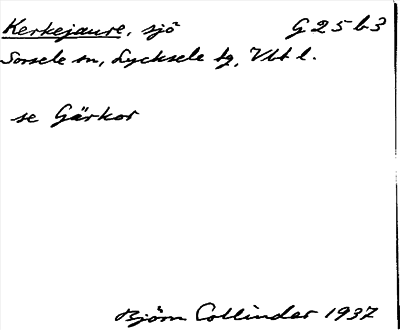 Kerkejaure, sjö G 25 b 3
Sorsele sn, Lycksele tg, Vbt l.
se Gärkor
Björn Collinder 1937